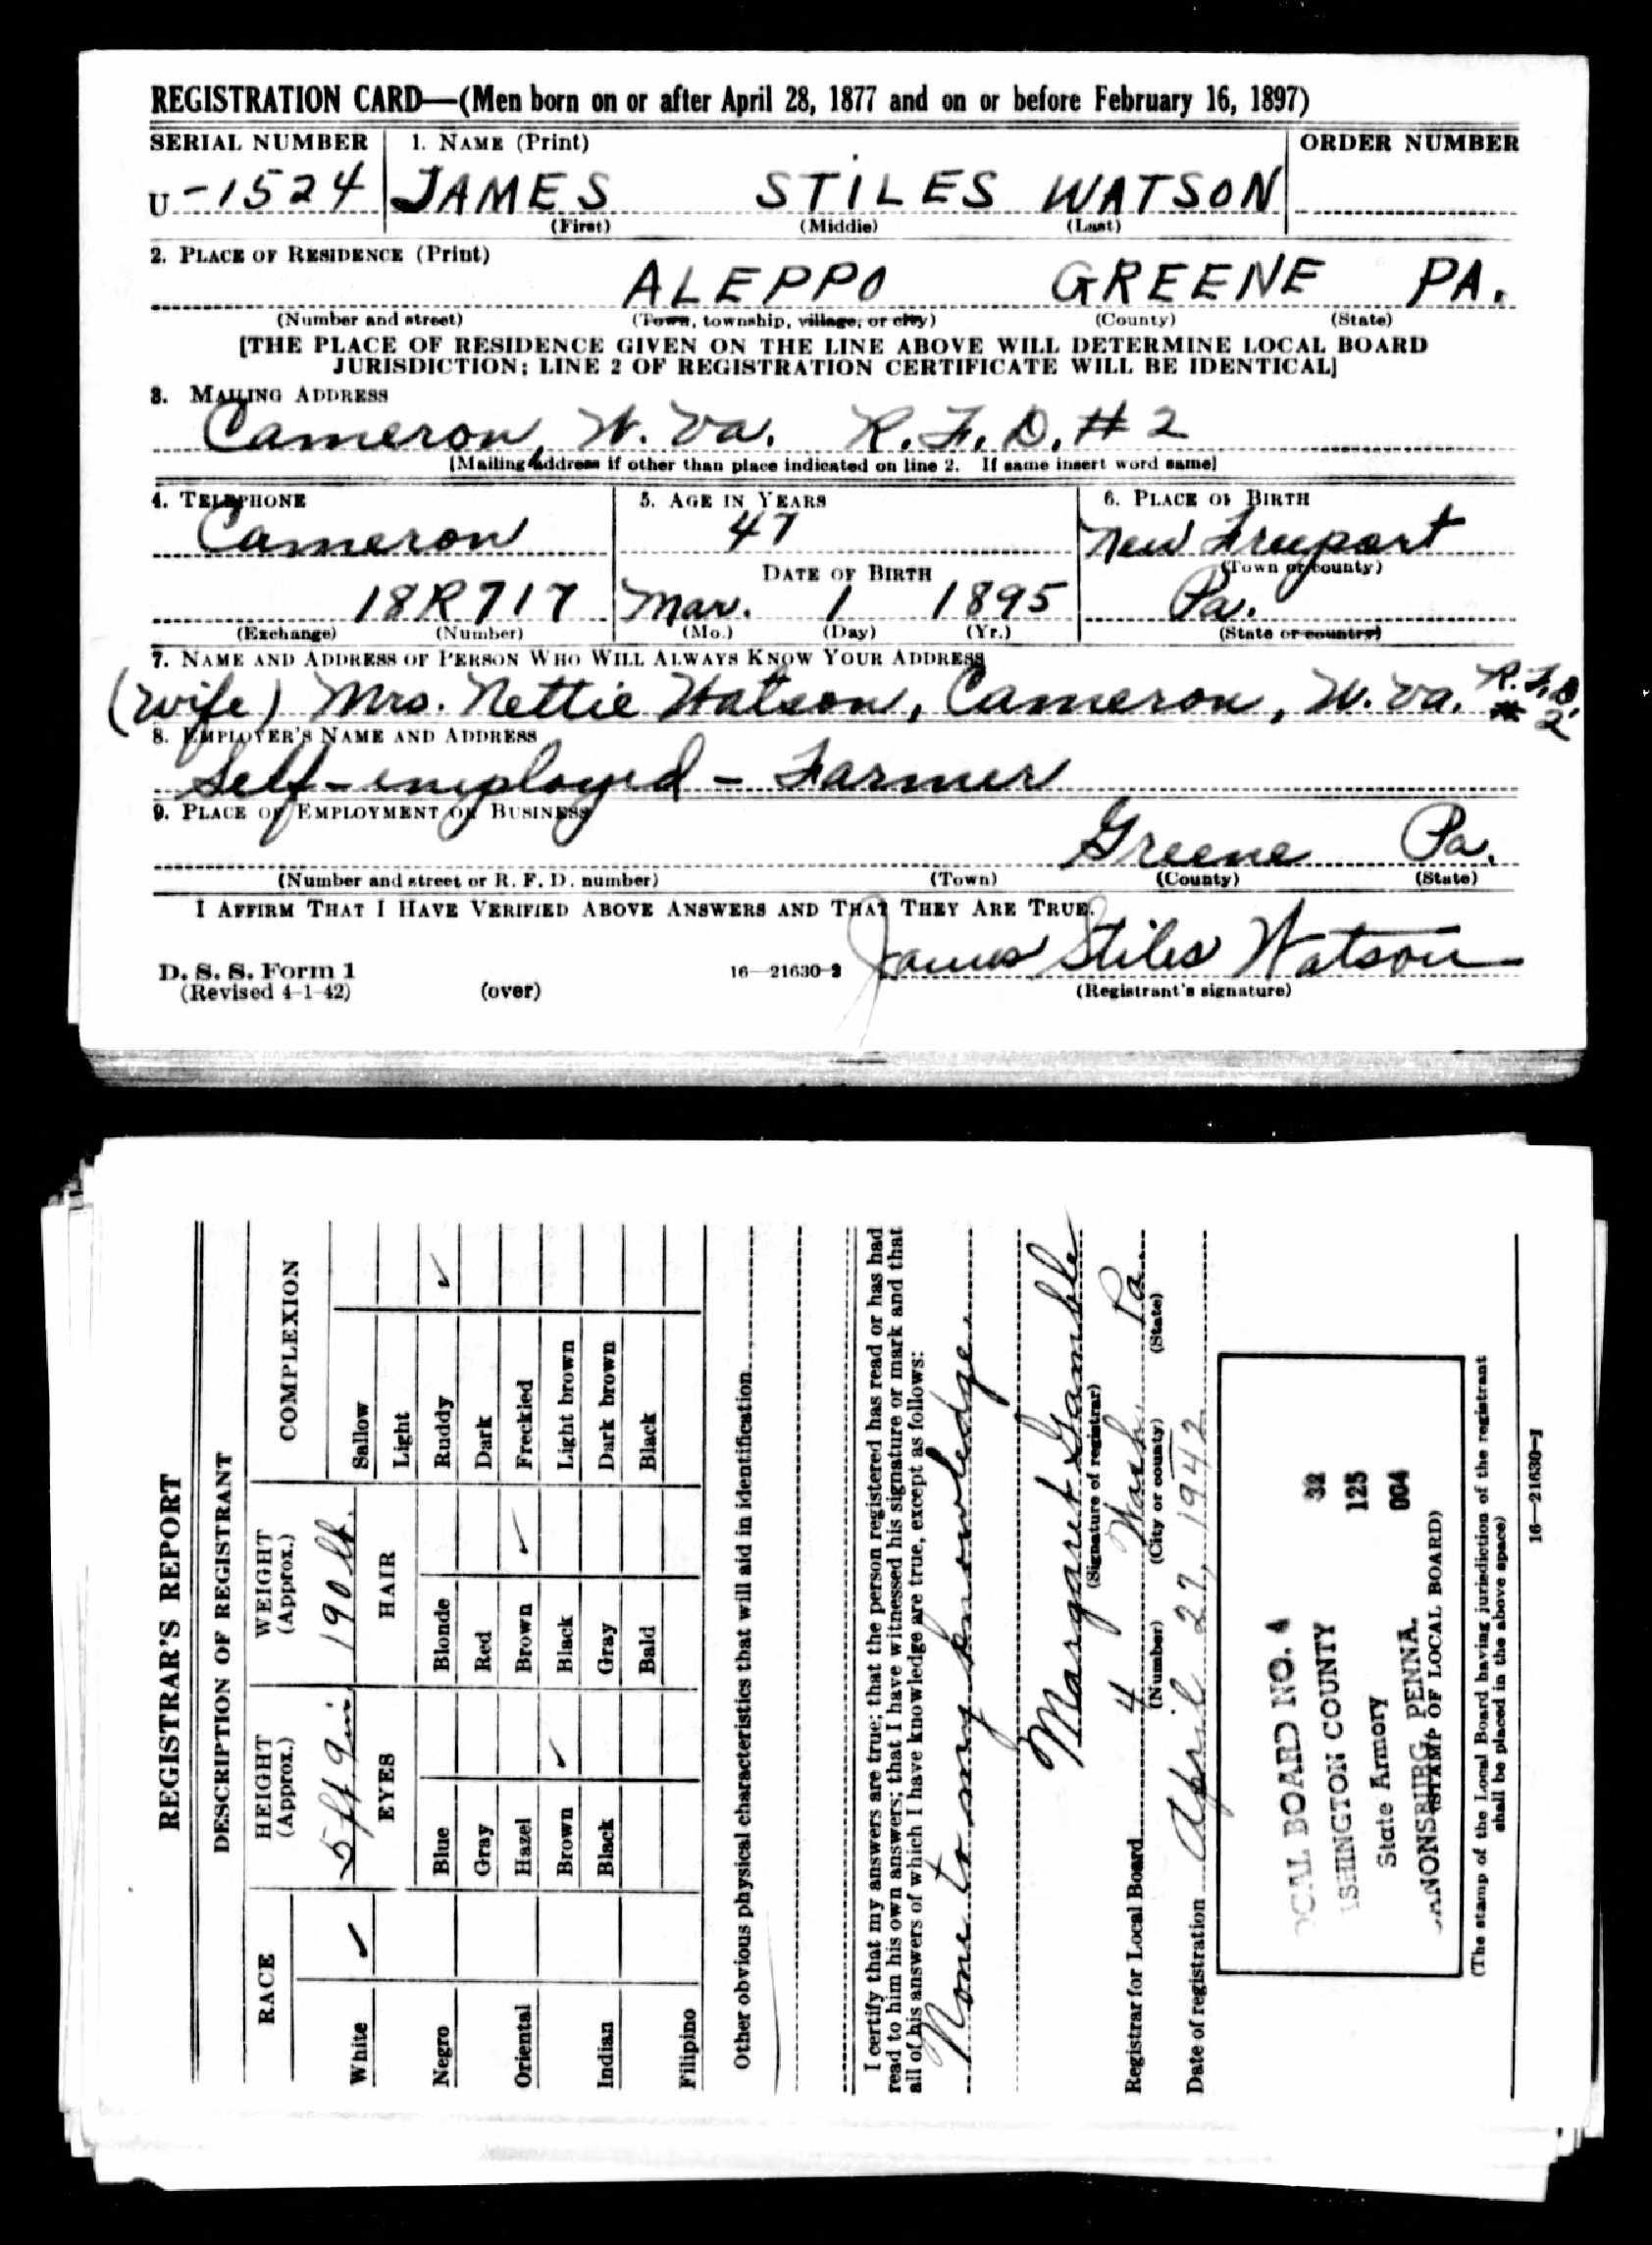 REGISTRATION CARD—(Men born on or after April 28, 1877 and on or before February 16, 1897)
SERIAL NUMBER 1. NAME (Print) ORDER NUMBER
U -1524 JAMES STILES WATSON
(First) (Middle) (Last)
2. PLACE OF RESIDENCE (Print)
ALEPPO GREENE PA.
(Number and street) (Town, township, village, or city) (County) (State)
[THE PLACE OF RESIDENCE GIVEN ON THE LINE ABOVE WILL DETERMINE LOCAL BOARD
JURISDICTION; LINE 2 OF REGISTRATION CERTIFICATE WILL BE IDENTICAL]
3. MAILING ADDRESS
Cameron, W. Va. R.F.D. #2
[Mailing address if other than place indicated on line 2. If same insert word same]
4. TELEPHONE 5. AGE IN YEARS 6. PLACE OF BIRTH
Cameron 47 New Freeport
DATE OF BIRTH (Town or county)
18R717 Mar. 1 1895 Pa.
(Exchange) (Number) (Mo.) (Day) (Yr.) (State or country)
7. NAME AND ADDRESS OF PERSON WHO WILL ALWAYS KNOW YOUR ADDRESS
(Wife) Mrs. Nettie Watson, Cameron, W. Va. R.F.D. #2
8. EMPLOYER'S NAME AND ADDRESS
Self-employed - Farmer
9. PLACE OF EMPLOYMENT OR BUSINESS
Greene Pa.
(Number and street or R. F. D. number) (Town) (County) (State)
I AFFIRM THAT I HAVE VERIFIED ABOVE ANSWERS AND THAT THEY ARE TRUE.
James Stiles Watson
D. S. S. Form 1
(Revised 4-1-42) (over) 16—21630-2 (Registrant's signature)
REGISTRAR'S REPORT
DESCRIPTION OF REGISTRANT
RACE HEIGHT (Approx.) WEIGHT (Approx.) COMPLEXION
White ✓ 5 ft 9 in. 190 lb. Sallow
EYES HAIR Light
Negro Blue Blonde Ruddy ✓
Gray Red Dark
Oriental Hazel Brown ✓ Freckled
Brown ✓ Black Light brown
Indian Black Gray Dark brown
Bald Black
Filipino
Other obvious physical characteristics that will aid in identification
I certify that my answers are true; that the person registered has read or has had
read to him his own answers; that I have witnessed his signature or mark and that
all of his answers of which I have knowledge are true, except as follows:
None to my knowledge
Margaret Gamble
(Signature of registrar)
Registrar for Local Board 4 Wash. Pa.
(Number) (City or county) (State)
Date of registration April 27, 1942
OCAL BOARD NO. 4
SHINGTON COUNTY 32
State Armory 125
ANONSBURG, PENNA. 004
(STAMP OF LOCAL BOARD)
(The stamp of the Local Board having jurisdiction of the registrant
shall be placed in the above space)
16—21630-1